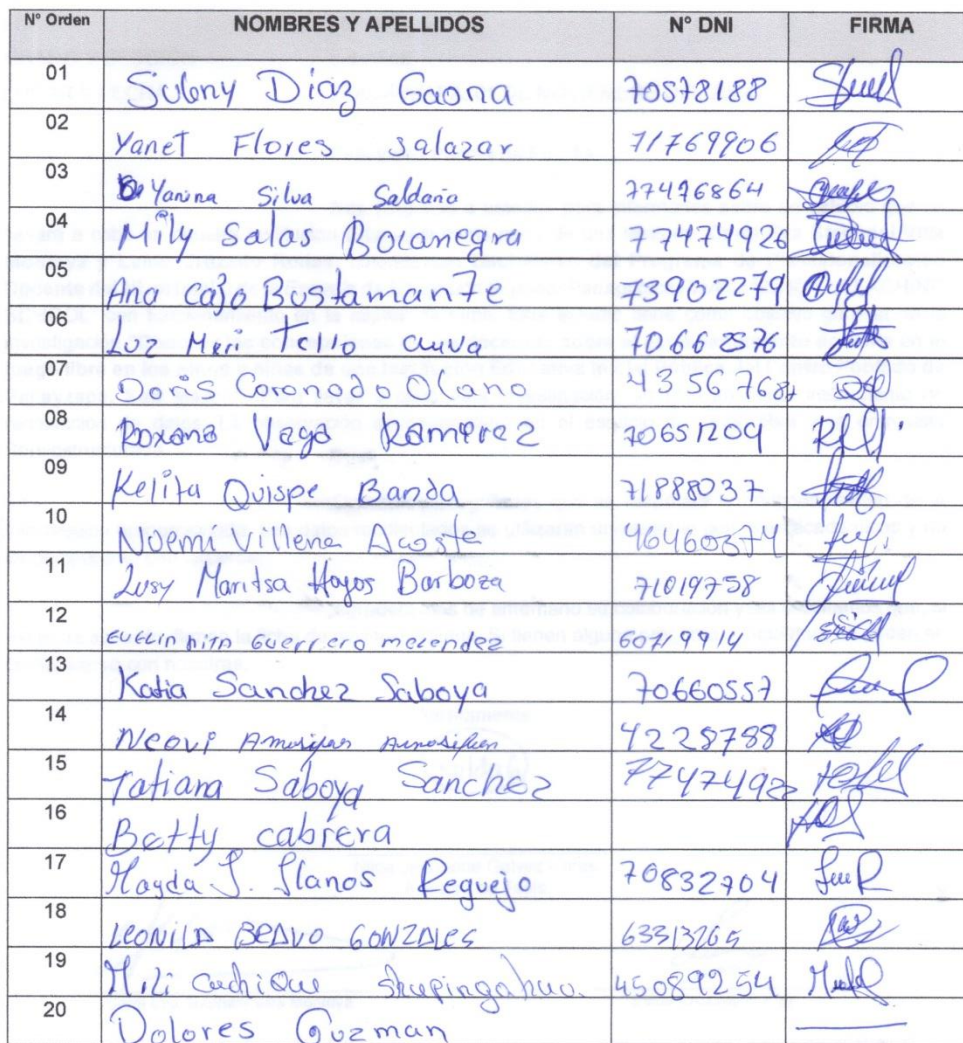 N° Orden NOMBRES Y APELLIDOS N° DNI FIRMA
01 Sulony Diaz Gaona 70578188
02 Yanet Flores Salazar 71769906
03 Yanina Silva Saldaña 77496864
04 Mily Salas Bocanegra 77474926
05 Ana Cajo Bustamante 73902279
06 Luz Meri Tello 70662376
07 Doris Coronado 43567687
08 Roxana Vega Ramirez 70651209
09 Kelita Quispe Banda 71888037
10 Noemi Villena Acosta 46460374
11 Lusy Maritsa Hoyos Barboza 71019758
12 Guerrero
13 Katia Sanchez Saboya 70660557
14 4228788
15 Tatiana Saboya Sanchez 77474922
16 Betty cabrera
17 Mayda J. Llanos Requejo 70832704
18 LEONILDA BRAVO GONZALES 63313265
19 Mili 45089254
20 Dolores Guzman